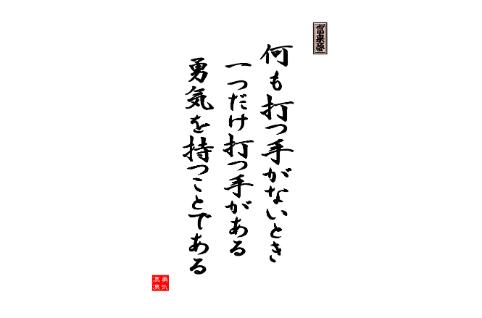 何も打つ手がないとき
一つだけ打つ手がある
勇気を持つことである